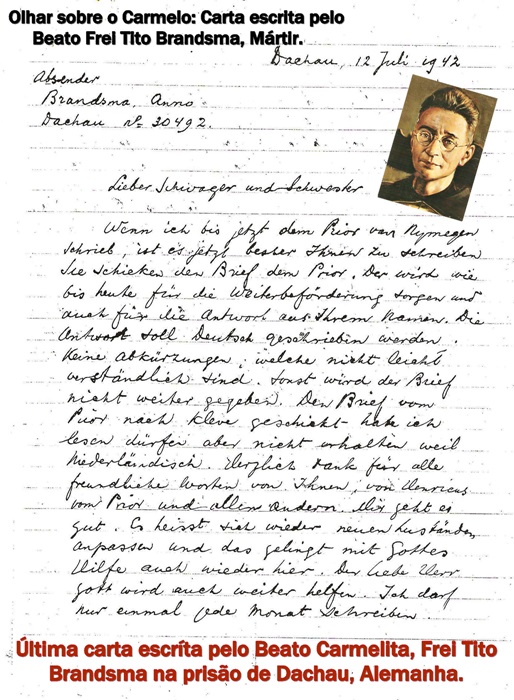 Olhar sobre o Carmelo: Carta escrita pelo
Beato Frei Tito Brandsma, Mártir.
Dachau, 12 Juli 1942
Absender
Brandsma, Anno
Dachau no 30492.
Lieber Schwager und Schwester
Wenn ich bis jetzt dem Prior van Nymegen
schrieb, ist es jetzt besser Ihnen zu schreiben
Sie schicken den Brief dem Prior. Der wird wie
bis heute für die Weiterbeförderung sorgen und
auch für die Antwort aus Ihrem Namen. Die
Antwort soll Deutsch geschrieben werden.
Keine abkürzungen, welche nicht leicht
verständlich sind. Sonst würd der Brief
nicht weiter gegeben. Den Brief vom
Prior nach Kleve geschickt habe ich
lesen dürfen aber nicht erhalten weil
Niederländisch. Herzlich Dank für alle
freundliche Worten von Ihnen, von Henricus
vom Prior und allen andern. Mir geht es
gut. Es heisst sich wieder neuen Zuständen
anpassen und das gelingt mit Gottes
Hilfe auch wieder hier. Der liebe Herr
Gott wird auch weiter helfen. Ich darf
nur einmal jede Monat schreiben
Última carta escrita pelo Beato Carmelita, Frei Tito
Brandsma na prisão de Dachau, Alemanha.